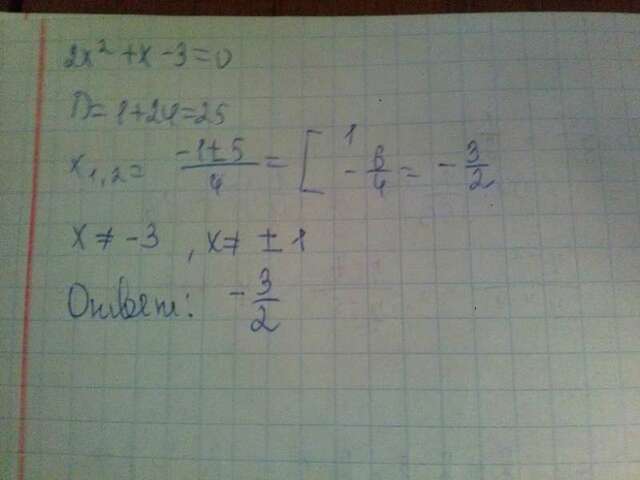 2x² + x - 3 = 0
D = 1 + 24 = 25
x₁,₂ = (-1 ± 5)/4 = [ 1 ; -6/4 = -3/2
x ≠ -3 , x ≠ ± 1
Ответ: -3/2